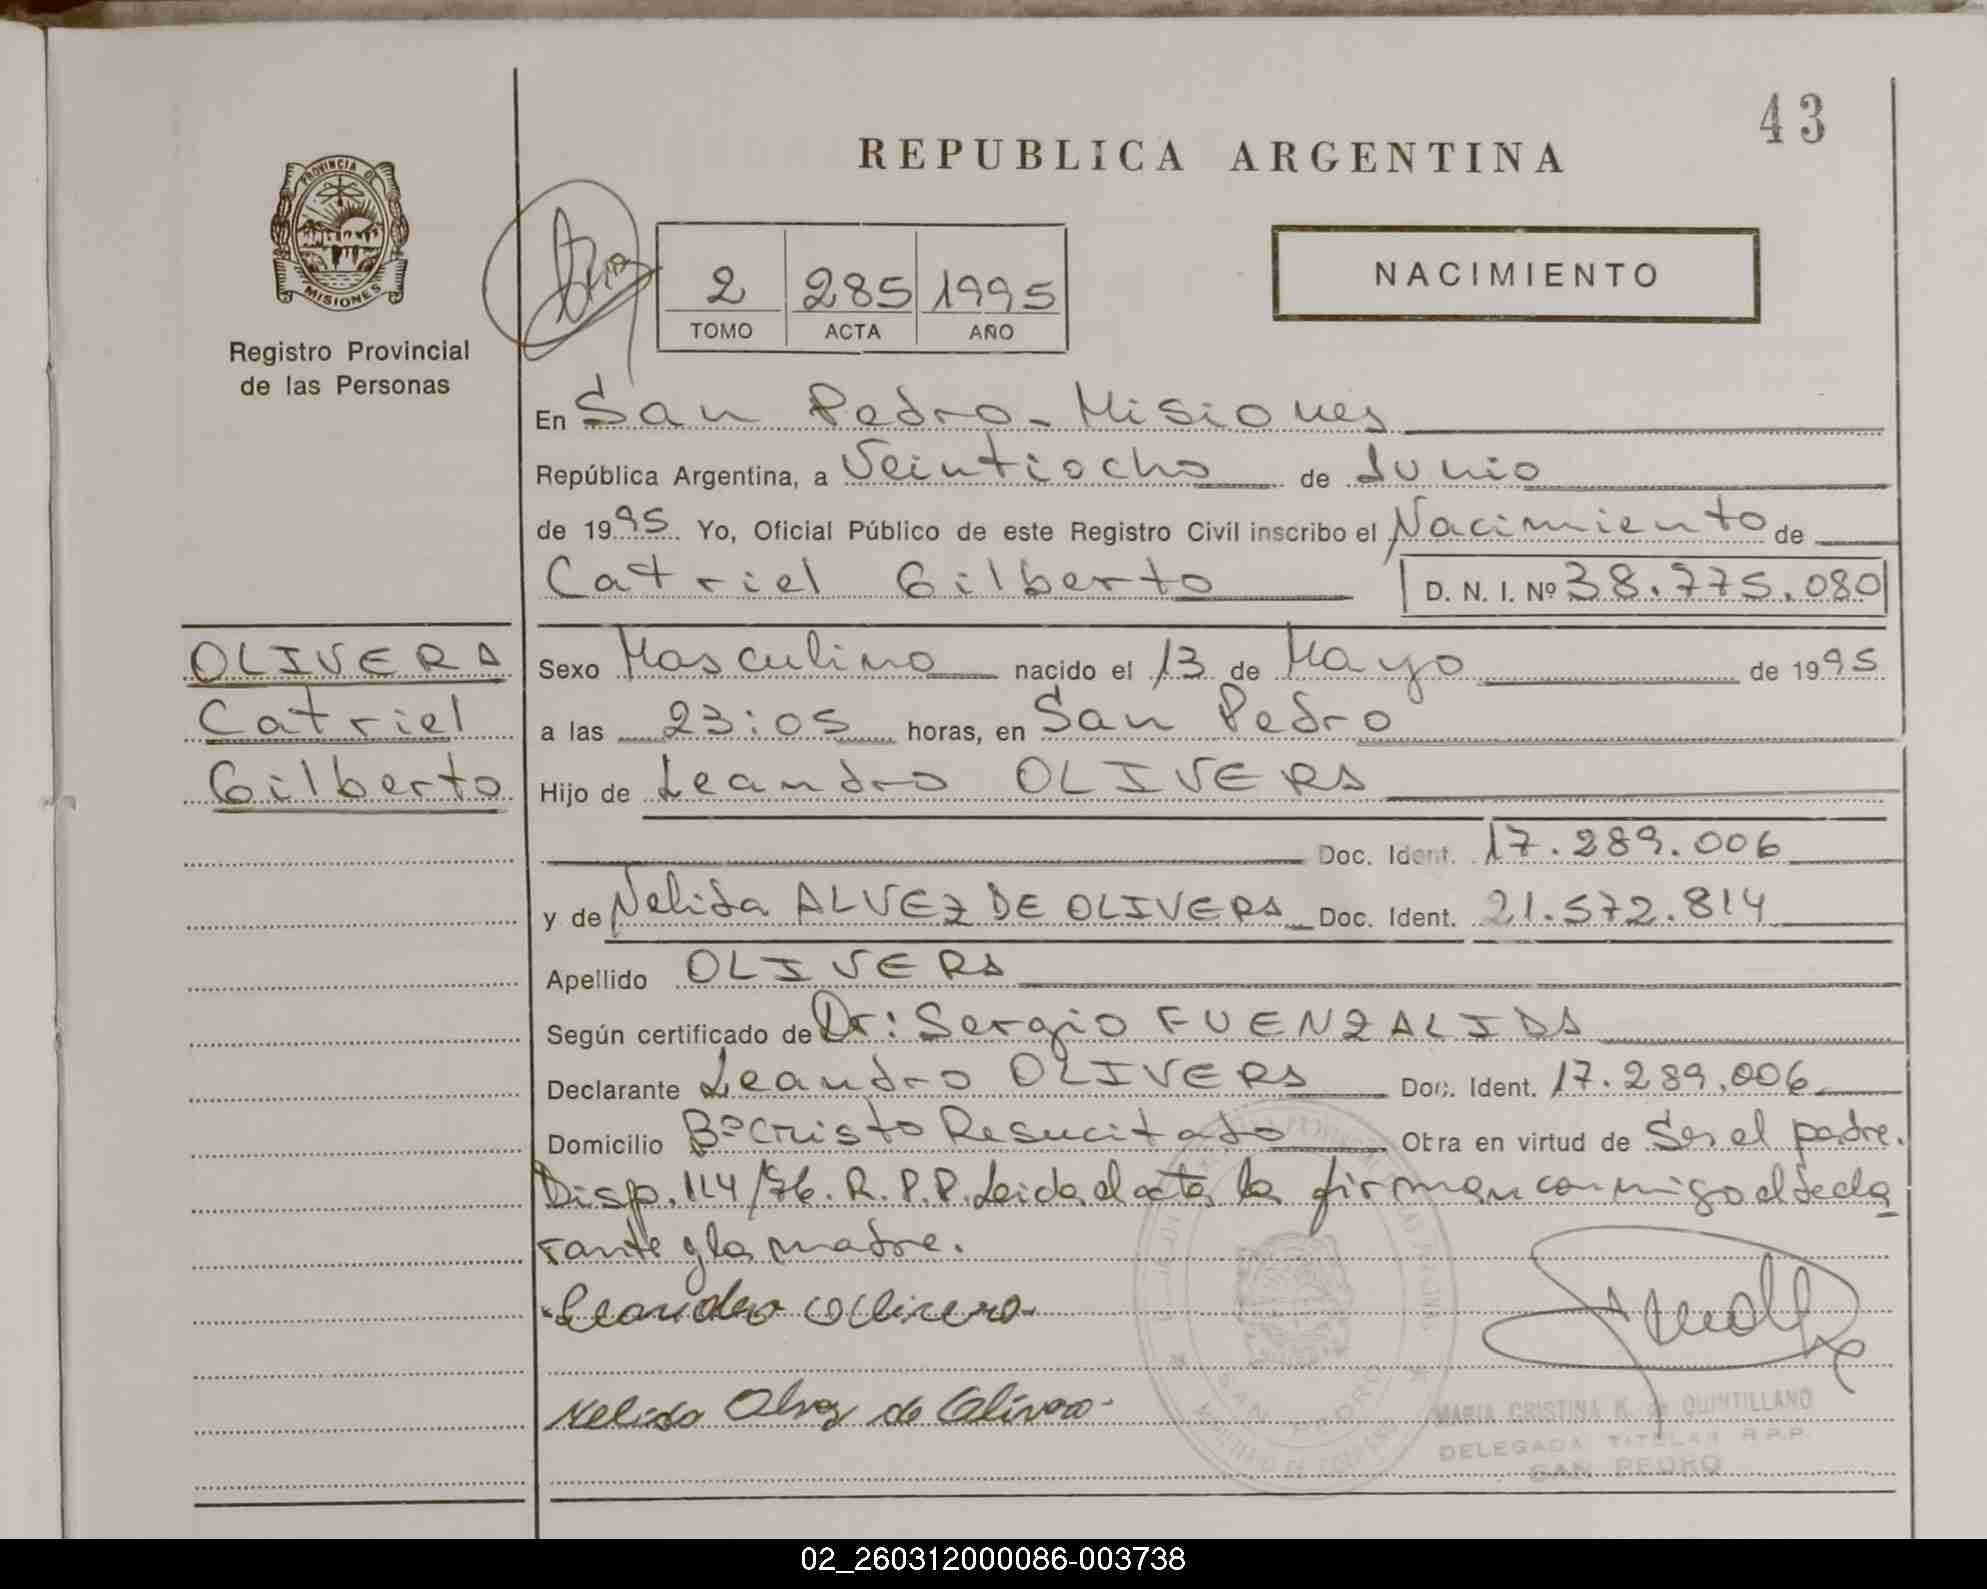 43
REPUBLICA ARGENTINA
PROVINCIA DE
MISIONES
Registro Provincial
de las Personas
2 285 1995
TOMO ACTA AÑO
NACIMIENTO
En San Pedro - Misiones
República Argentina, a Veintiocho de Junio
de 1995 Yo, Oficial Público de este Registro Civil inscribo el Nacimiento de
Catriel Gilberto D. N. I. Nº 38.775.080
OLIVERA
Catriel
Gilberto
Sexo Masculino nacido el 13 de Mayo de 1995
a las 23:05 horas, en San Pedro
Hijo de Leandro OLIVERA
Doc. Ident. 17.289.006
y de Nelida ALVEZ DE OLIVERA Doc. Ident. 21.572.814
Apellido OLIVERA
Según certificado de Dr: Sergio FUENZALIDA
Declarante Leandro OLIVERA Doc. Ident. 17.289.006
Domicilio Bº Cristo Resucitado Obra en virtud de Ser el padre.
Disp. 114/76. R.P.P. Leida el acta la firman conmigo el decla
rante y la madre.
Leandro Olivera
Nelida Alvez de Olivera
SAN PEDRO
MARIA CRISTINA K. de QUINTILLANO
DELEGADA TITULAR R.P.P.
SAN PEDRO
02_260312000086-003738